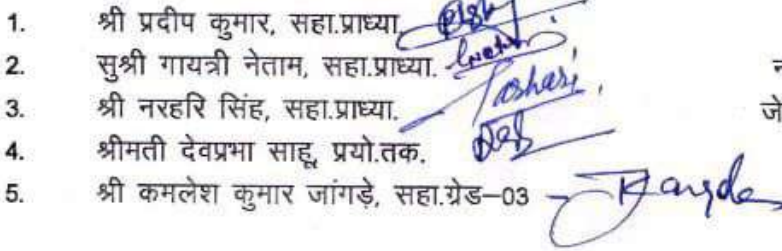 1. श्री प्रदीप कुमार, सहा.प्राध्या.
2. सुश्री गायत्री नेताम, सहा.प्राध्या.
3. श्री नरहरि सिंह, सहा.प्राध्या.
4. श्रीमती देवप्रभा साहू, प्रयो.तक.
5. श्री कमलेश कुमार जांगड़े, सहा.ग्रेड–03